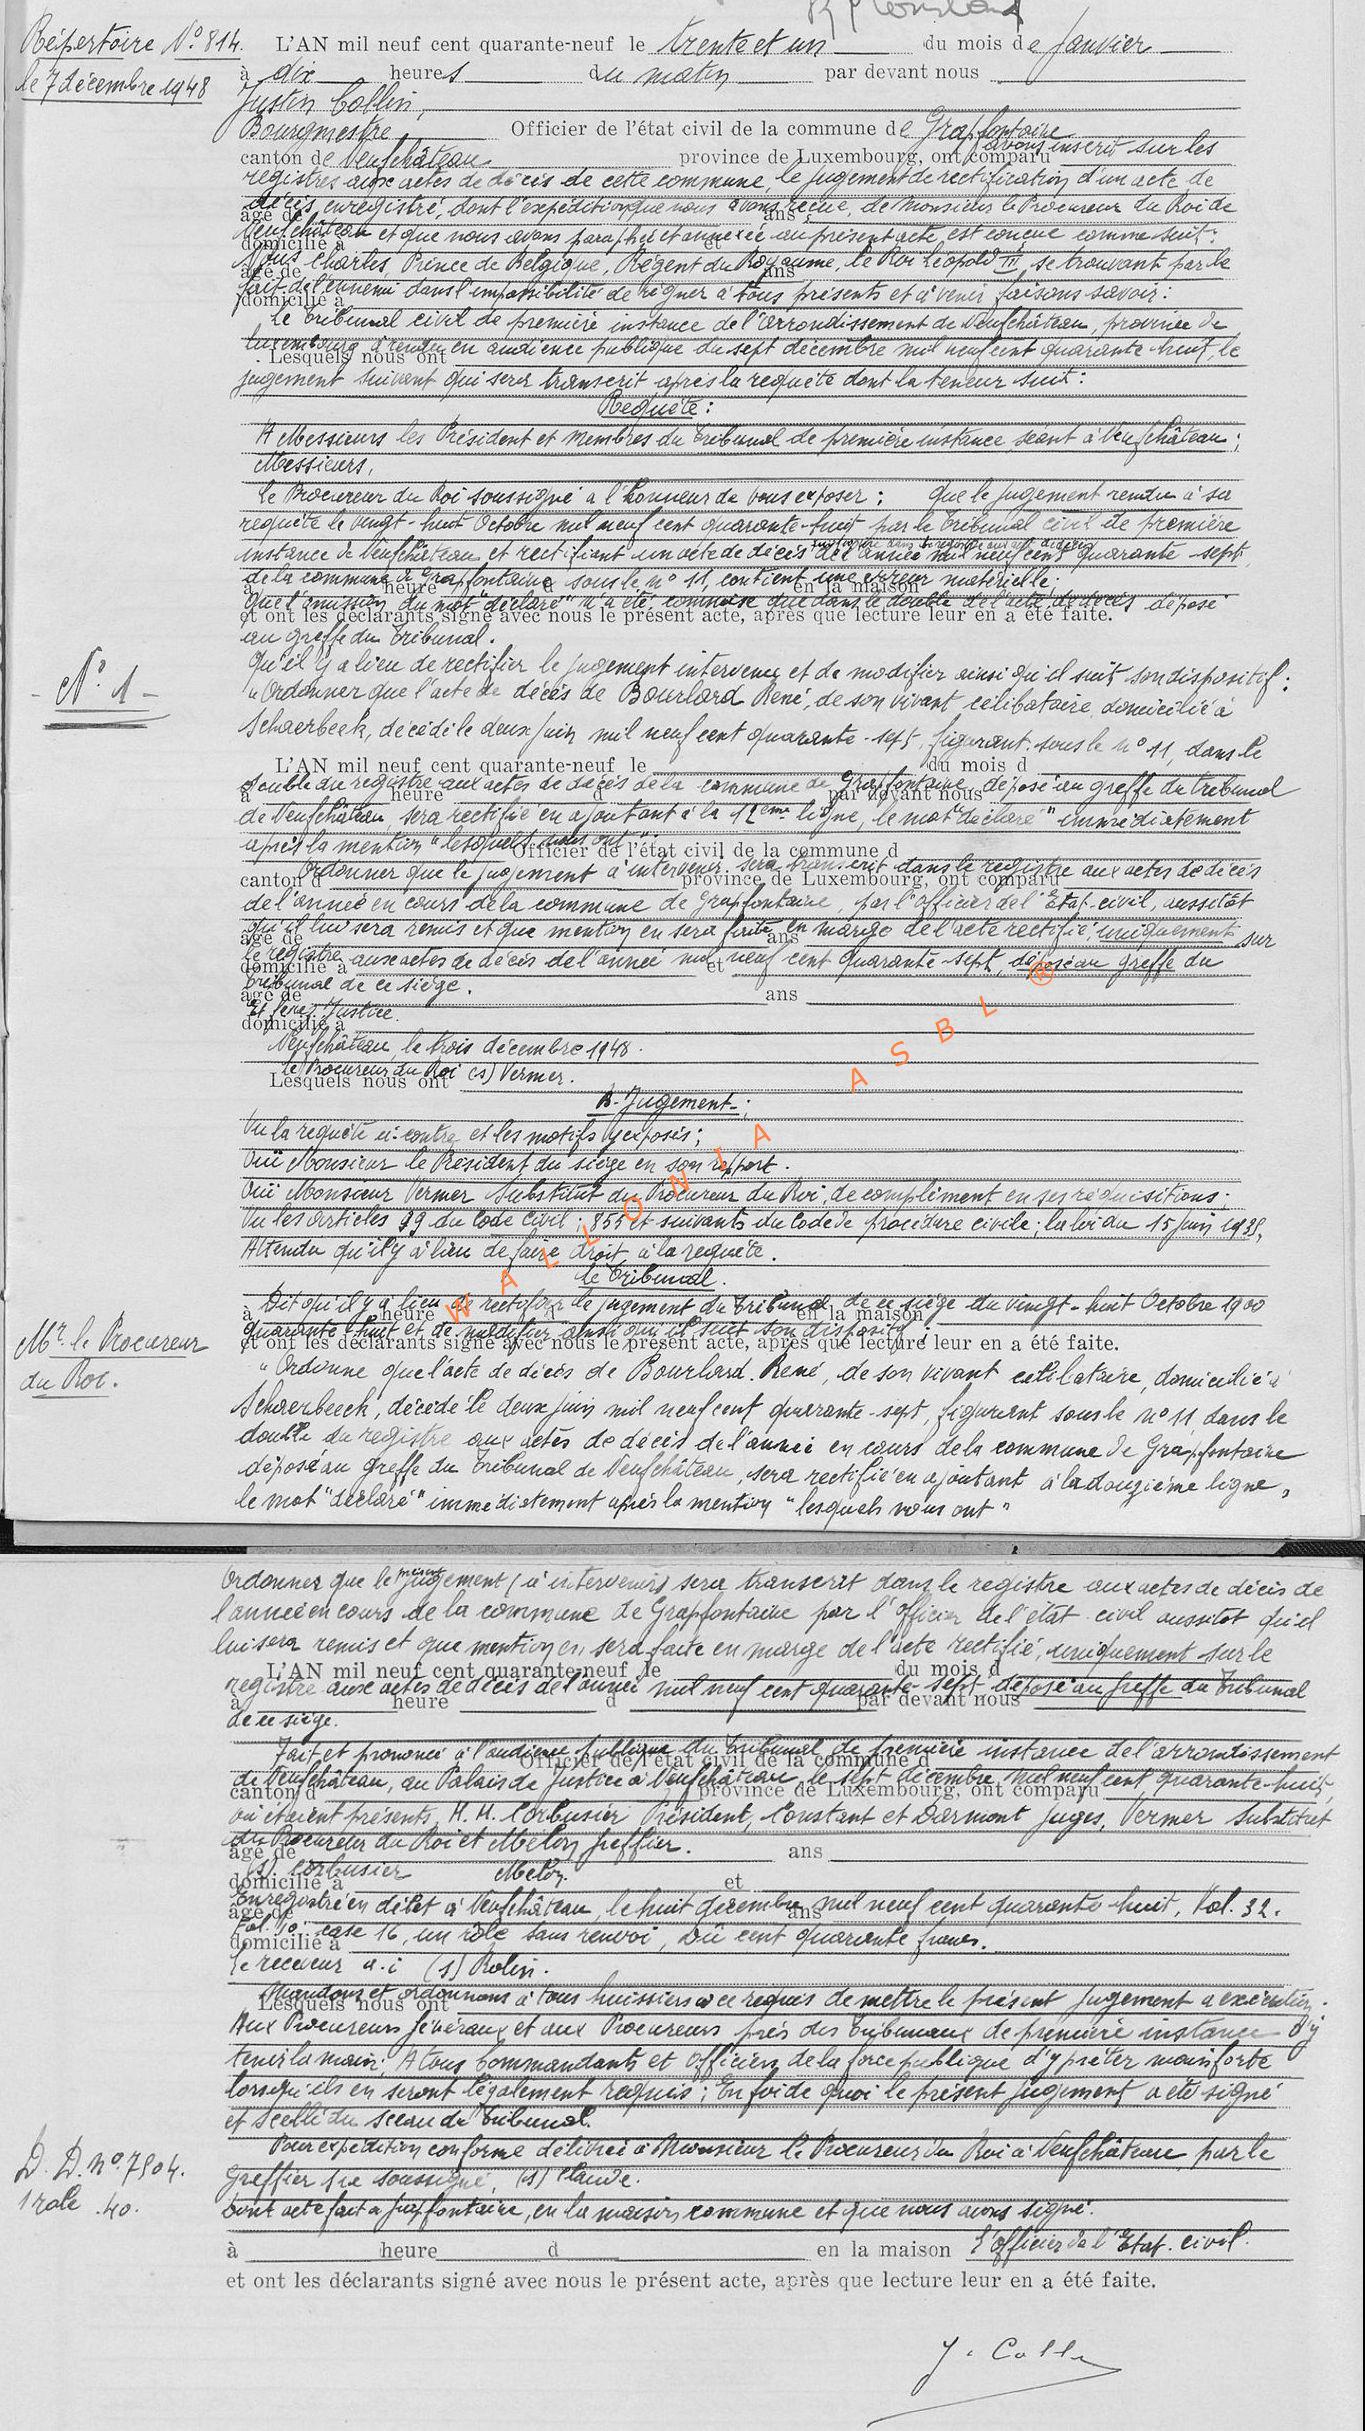 Répertoire N° 814.
le 7 décembre 1948
L'AN mil neuf cent quarante-neuf le trente et un du mois de Janvier
à dix heures du matin par devant nous
Justin Collin,
Bourgmestre Officier de l'état civil de la commune de Grapfontaine
canton de Neufchâteau province de Luxembourg, ont comparu avons inscrit sur les
registres aux actes de décès de cette commune, le jugement de rectification d'un acte de
décès enregistré, dont l'expédition que nous avons reçue, de Monsieur le Procureur du Roi de
âge de ans,
Neufchâteau et que nous avons paraphée et annexée au présent acte est conçue comme suit:
domicilié à et
Nous Charles, Prince de Belgique, Régent du Royaume, le Roi Léopold III, se trouvant par le
âge de ans
fait de l'ennemi dans l'impossibilité de régner à tous présents et à venir faisons savoir:
domicilié à
Le Tribunal civil de première instance de l'arrondissement de Neufchâteau, province de
Luxembourg a rendu en audience publique du sept décembre mil neuf cent quarante huit, le
Lesquels nous ont
jugement suivant qui sera transcrit après la requête dont la teneur suit:
Requête:
A Messieurs les Président et Membres du Tribunal de première instance, séant à Neufchâteau;
Messieurs,
Le Procureur du Roi soussigné a l'honneur de vous exposer: Que le jugement rendu à sa
requête le vingt-huit Octobre mil neuf cent quarante-huit par le Tribunal civil de première
instance de Neufchâteau et rectifiant un acte de décès de l'année mil neuf cent quarante sept,
de la commune de Grapfontaine sous le n° 11, contient une erreur matérielle.
à heure d en la maison
Que l'omission du mot "déclaré" n'a été commise que dans le double de l'acte de décès déposé
et ont les déclarants signé avec nous le présent acte, après que lecture leur en a été faite.
au greffe du Tribunal.
- N° 1 -
Qu'il y a lieu de rectifier le jugement intervenu et de modifier ainsi qu'il suit son dispositif:
"Ordonner que l'acte de décès de Bourlard René, de son vivant célibataire, domicilié à
Schaerbeek, décédé le deux Juin mil neuf cent quarante-sept, figurant sous le n° 11, dans le
L'AN mil neuf cent quarante-neuf le du mois d
double du registre aux actes de décès de la commune de Grapfontaine, déposé au greffe du tribunal
à heure d par devant nous
de Neufchâteau, sera rectifié en ajoutant à la 12eme ligne, le mot "déclaré" immédiatement
après la mention "lesquels nous ont".
Officier de l'état civil de la commune d
Ordonner que le jugement à intervenir sera transcrit dans le registre aux actes de décès
canton d province de Luxembourg, ont comparu
de l'année en cours de la commune de Grapfontaine, par l'officier de l'Etat-civil, aussitôt
qu'il lui sera remis et que mention en sera faite en marge de l'acte rectifié, uniquement sur
âge de ans
le registre aux actes de décès de l'année mil neuf cent quarante-sept, déposé au greffe du
domicilié à et
Tribunal de ce siège.
âge de ans
Et ferez Justice.
domicilié à
Neufchâteau, le trois décembre 1948.
Le Procureur du Roi (s) Vermer.
Lesquels nous ont
B. Jugement:
Vu la requête ci-contre et les motifs y exposés;
Ouï Monsieur le Président du siège en son rapport.
Ouï Monsieur Vermer Substitut du Procureur du Roi, de compliment en ses réquisitions;
Vu les articles 99 du Code Civil; 855 et suivants du Code de procédure civile; la loi du 15 Juin 1935,
Attendu qu'il y a lieu de faire droit à la requête.
Le Tribunal.
Dit qu'il y a lieu de rectifier le jugement du Tribunal de ce siège du vingt-huit Octobre 1900
à heure d en la maison
quarante huit et de modifier ainsi qu'il suit son dispositif:
et ont les déclarants signé avec nous le présent acte, après que lecture leur en a été faite.
Mr. le Procureur
du Roi.
"Ordonne que l'acte de décès de Bourlard René, de son vivant célibataire, domicilié à
Schaerbeeck, décédé le deux juin mil neuf cent quarante-sept, figurant sous le n° 11, dans le
double du registre aux actes de décès de l'année en cours de la commune de Grapfontaine
déposé au greffe du Tribunal de Neufchâteau, sera rectifié en ajoutant à la douzième ligne,
le mot "déclaré" immédiatement après la mention "lesquels nous ont"
WALLONIA ASBL ®
Ordonner que le présent jugement (à intervenir) sera transcrit dans le registre aux actes de décès de
l'année en cours de la commune de Grapfontaine par l'officier de l'état-civil aussitôt qu'il
lui sera remis et que mention en sera faite en marge de l'acte rectifié, uniquement sur le
L'AN mil neuf cent quarante-neuf le du mois d
registre aux actes de décès de l'année mil neuf cent quarante-sept déposé au greffe du Tribunal
à heure d par devant nous
de ce siège.
Fait et prononcé à l'audience publique du Tribunal de première instance de l'arrondissement
Officier de l'état civil de la commune d
de Neufchâteau, au Palais de Justice à Neufchâteau, le sept décembre mil neuf cent quarante-huit,
canton d province de Luxembourg, ont comparu
où étaient présents, M. M. Corbusier Président, Constant et Darmont Juges, Vermer Substitut
du Procureur du Roi et Melon greffier.
âge de ans
(s) Corbusier Melon.
domicilié à et
Enregistré en débet à Neufchâteau, le huit décembre mil neuf cent quarante-huit, Vol. 32.
âge de ans
Fol. 10. case 16, un rôle sans renvoi, Dû cent quarante francs.
domicilié à
Le receveur a.i (s) Rolin.
Mandons et ordonnons à tous huissiers à ce requis de mettre le présent jugement à exécution.
Lesquels nous ont
Aux Procureurs Généraux et aux Procureurs près des Tribunaux de première instance d'y
tenir la main; A tous Commandants et Officiers de la force publique d'y prêter mainforte
lorsqu'ils en seront légalement requis; En foi de quoi le présent jugement a été signé
et scellé du sceau du Tribunal.
Pour expédition conforme délivrée à Monsieur le Procureur du Roi à Neufchâteau, par le
D. D. n° 7504.
Greffier soussigné, (s) Claude.
1 role .40.
Dont acte fait à Grapfontaine, en la maison commune et que nous avons signé.
à heure d en la maison L'officier de l'Etat-civil.
et ont les déclarants signé avec nous le présent acte, après que lecture leur en a été faite.
J. Collin